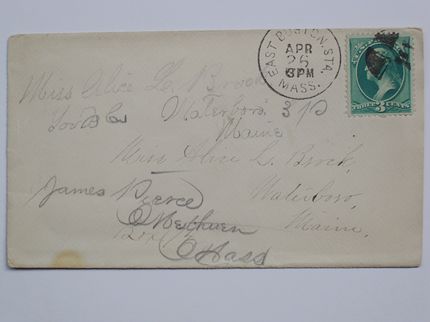 EAST BOSTON STA.
APR
26
3PM
MASS.
THREE 3 CENTS
Miss Alice L. Brock
Waterboro
Maine
Miss Alice L. Brock,
Waterboro,
Maine.
James Pierce
Methuen
Mass
Box